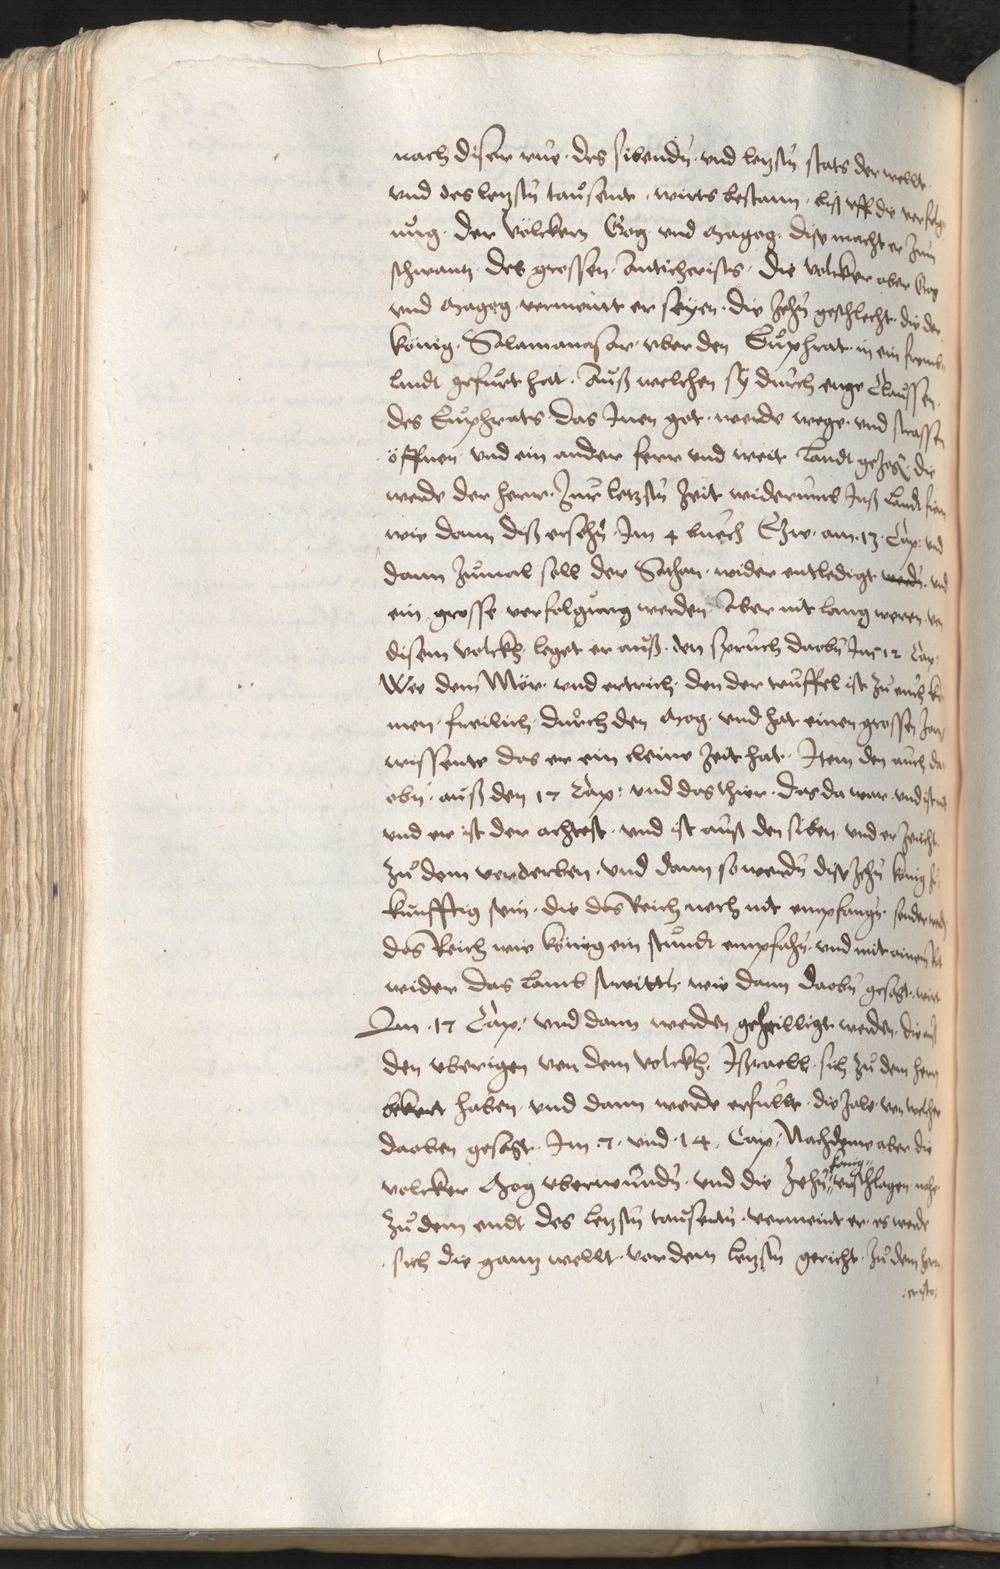 nach diser rue · des sibendn̄ · vnd letzstn̄ stats der wellt ·
vnd des letzstn̄ tausents · wirts bestann · biß vff die verfolg
ung · der völckern Gog vnd Magog · dise macht er zum
schwantz · des grossen · Antichrists · die volcker aber Gog
vnd Magog vermeint er seyen · die zehn̄ geschlecht · die der
könig · Salamanasar · vber den Euphrat · in ein fremb
landt gefurt hat · Auß welchen sy durch enge Claussen ·
des Euphrats · das Inen got · werde wege · vnd strassen
öffnen vnd ein ander ferr vnd weit landt · die
werde der herr · zur letzstn̄ zeit widerumb Inß landt
wie dann diß Im 4 buech Esre · am · 13 · Cap: vnd
dann zumal soll der Sathan · wider entledigt werdn̄ · vnd
ein grosse verfolgung werden · Aber nit lang weren · von
disem volckh leget er auß · den spruch dabn̄ Im 12 Cap:
Wee dem Mör · vnd ertrich · den der teuffel ist zu euch ko
men · freilich · durch den Gog · vnd hat einen grossen zorn
wissente das er ein cleine zeit hat · Item den auch da
obn̄ · auß den 17 Cap: vnd das thier · das da war · vnd ist nit
vnd er ist der achtest · vnd ist auß den siben vnd er zeücht
zu dem verderben · vnd dann so werdn̄ dise zehn̄ könig
kunfftig sein · die das Reich noch nit empfangn̄ · sonder werdn̄
das Reich wie könig ein stundt empfahn̄ · vnd mit ainem
wider das lamb streittn̄ · wie dann daobn̄ gesagt · wirt
Am · 17 Cap: vnd dann werden geheilligt werden · die auß
den vberigen von dem volckh · Ißraell · sich zu dem hern
bekert haben · vnd dann werde erfullt · die zale · von welcher
daoben gesagt · Im · 7 · vnd · 14 · Cap: Nachdeme aber die
volcker Gog vberwundn̄ · vnd die zehn̄ könig erschlagen · nahe
zu dem endt des letzstn̄ tausentn̄ · vermeint er · es werde
sich die gantz wellt · vor dem letzstn̄ gericht · zu dem hern
: cristo: